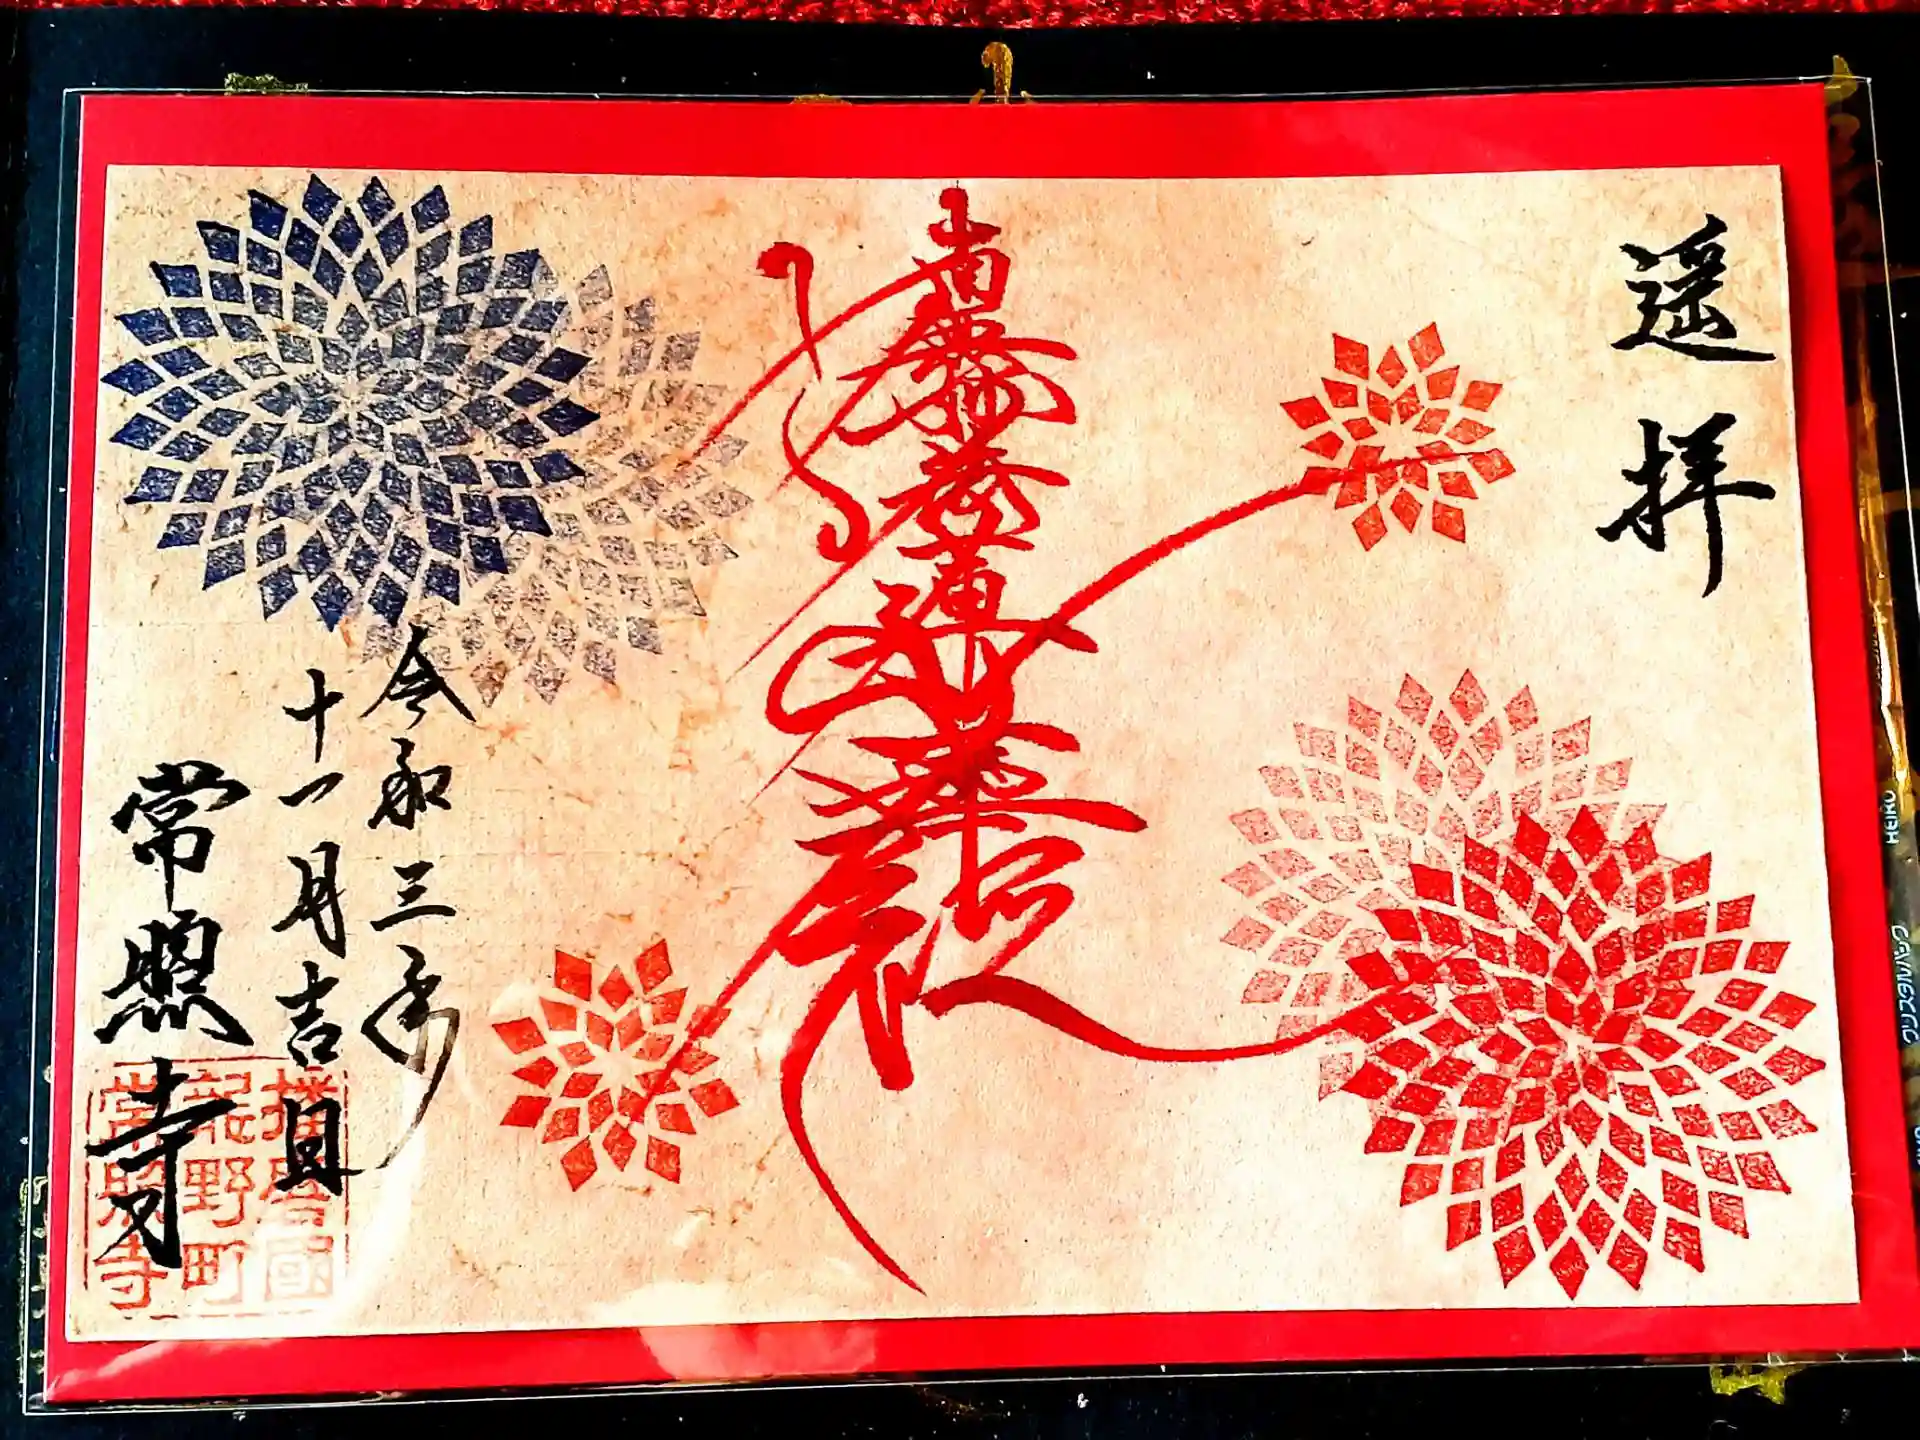 遥拝
南無妙法蓮華経
令和三年
十一月吉日
常照寺
播磨國
龍野町
常照寺
HEIKO